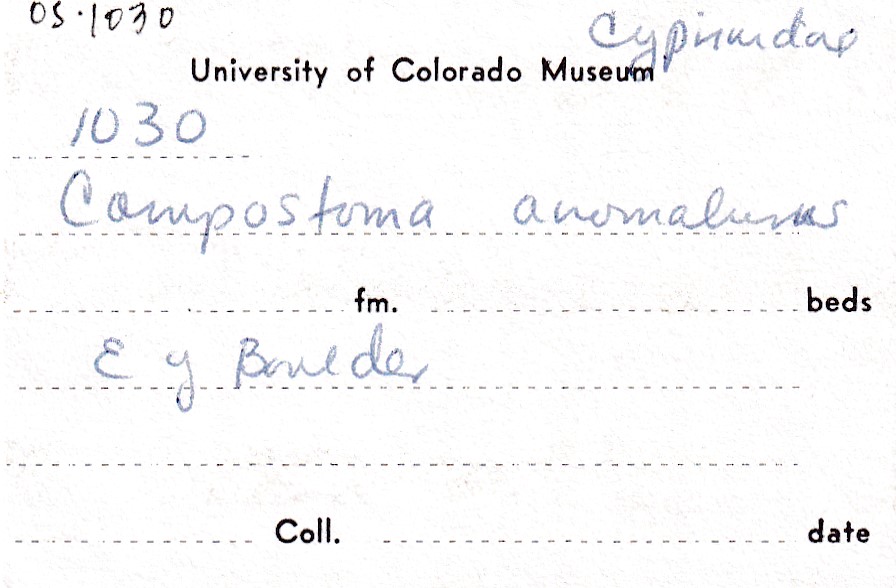 OS·1030
Cyprinidae
University of Colorado Museum
1030
Campostoma anomalum
fm. beds
E of Boulder
Coll. date